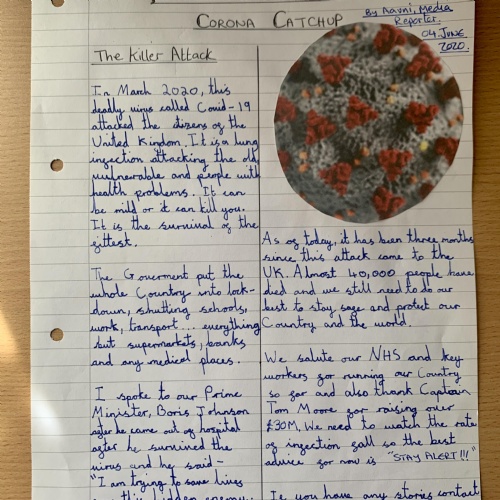 CORONA CATCHUP
By Aavni, Media
Reporter.
04 JUNE
2020.
The Killer Attack
In March 2020, this
deadly virus called Covid-19
attacked the citizens of the
United Kindom. It is a lung
infection attacking the old,
vulnerable and people with
health problems. It can
be mild or it can kill you.
It is the survival of the
fittest.
The Goverment put the
whole Country into lock-
down, shutting schools,
work, transport... everything
but supermarkets, banks
and any medical places.
I spoke to our Prime
Minister, Boris Johnson
after he came out of hospital
after he survived the
virus and he said-
"I am trying to save lives
from this hidden enemy
As of today, it has been three months
since this attack came to the
UK. Almost 40,000 people have
died and we still need to do our
best to stay safe and protect our
Country and the world.
We salute our NHS and key
workers for running our Country
so far and also thank Captain
Tom Moore for raising over
£30M. We need to watch the rate
of infection fall so the best
advice for now is "STAY ALERT!!!"
If you have any stories contact